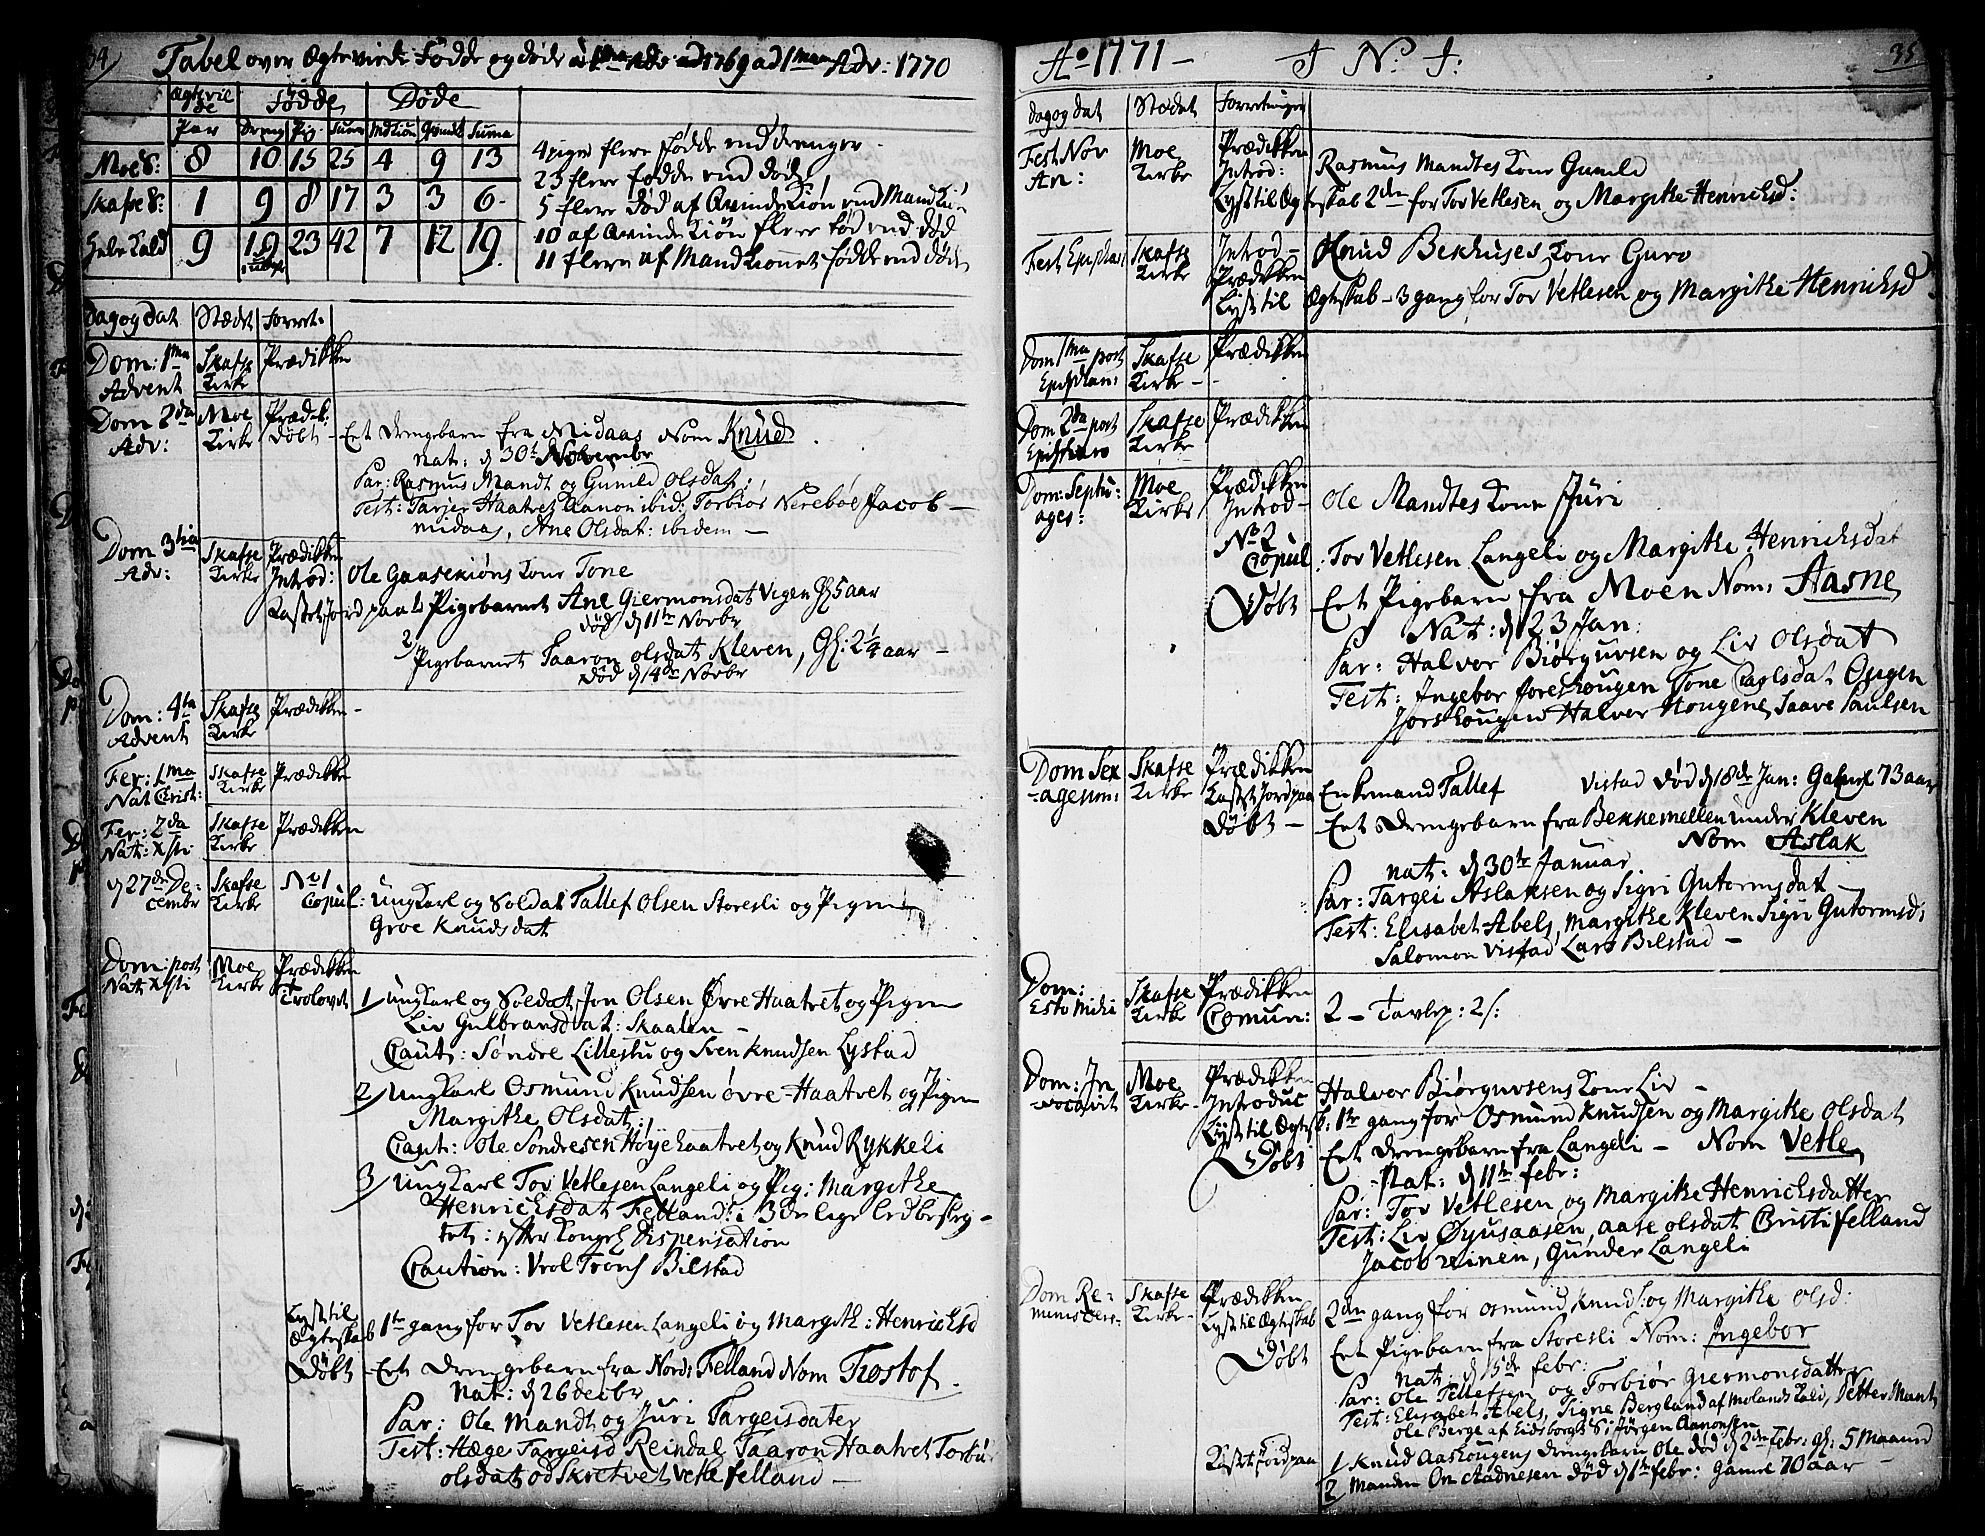 34
Tabel over Ægtevirde Fødde og døde a 1ma Adv: ad 1769 ad 1mam Adv: 1770
Ægtevil de | Fødde | Døde
Par | Dreng | Pig | Suma | Mdkiøn | Qvindk | Suma
Moe S: | 8 | 10 | 15 | 25 | 4 | 9 | 13
Skafse S: | 1 | 9 | 8 | 17 | 3 | 3 | 6
Hele Kald | 9 | 19 | 23 | 42 | 7 | 12 | 19
4 piger flere fødde end drenger
23 flere fødde end døde
5 flere død af Qvindekiøn end Mandkiøn
10 af Qvinde Kiøn flere fød end død
11 flere af Mandkionnet fødde end døde
Dag og dat | Stædet | Forret:
Dom: 1ma Advent | Skafse Kirke | Prædikken
Dom 2da Adv: | Moe Kirke | Prædik:
Døbt - Eet Drengebarn fra Midaas Nom Knud
Nat: d 30t Novembr
Par: Rasmus Mandt og Gunild Olsdat:
Test: Tarjer Haatvet Aanon ibid: Torbiør Nerebøe Jacob
midaas, Ane Olsdat: ibidem -
Dom 3tia Adv: | Skafse Kirke | Prædikken
Introd: Ole Gaasekiøns Kone Tone
Kastet Jord paa 1 Pigebarnet Ane Giermonsdat Vigen Gl 5 aar
død d 11te Novbr
2 Pigebarnet Taaron olsdat Kleven, Gl: 2 1/4 aar -
Død d 14de Novbr
Dom: 4ta Advent | Skafse Kirke | Prædikken -
Fer: 1ma Nat Christ: | Skafse Kirke | Prædikken
Fer: 2da Nat: Xsti | Skafse Kirke | Prædikken
d 27de De: cembr | Skafse Kirke | No 1
Copul: Ungkarl og Soldat Tallef Olsen Storesli og Pigen
Groe Knudsdat
Dom: post Nat: Xsti | Moe Kirke | Prædikken
Trolovet 1/ ungkarl og Soldat Jon Olsen Øvre Haatvet og Pigen
Liv Gulbransdat: Skaalen -
Caut: Søndre Lillestu og Sven Knudsen Lystad
2/ Ungkarl Osmund Knudsen øvre-Haatvet og Pigen
Margithe Olsdat:
Caut: Ole Sondresen Høye haatvet og Knud Rykkeli
3/ Ungkarl Tor Vetlesen Langeli og Pig: Margithe
Henrichsdat Felland: i 3de lige led besleg-
tet: efter Kongel Dispensation
Caution: Vrol Trons Bilstad
Lyst til Ægteskab 1te gang for Tov Vetlesen Langeli og Margith: Henrichsd
Døbt - Eet Drengebarn fra Nord: Felland Nom Trostof
Nat: d 26 decbr
Par: Ole Mandt og Juri Targeisdater
Test: Hæge Targeisd Reindal Taaron Haatvet Torbiø
olsdat odskretvet vetle felland -
35
Ao 1771 - J N: J:
Dag og dat | Stædet | Forretninger
Fest Nov An: | Moe Kirke | Prædikken
Introd: Rasmus Mandtes Kone Gunild
Lyst til Ægteskab 2den for Tov Vetlesen og Margithe Henrichsd:
Fest Epiphan: | Skafse Kirke | Introd - Knud Bekhuses Kone Guro
Prædikken
Lyst til Ægteskab - 3 gang for Tov Vetlesen og Margithe Henrichsd
Dom 1ma post Epiphan: | Skafse Kirke - | Prædikken
Dom 2da post Epiphan | Skafse Kirke | Prædikken
Dom: Septu: ages: | Moe Kirke | Prædikken
Introd - Ole Mandtes Kone Juri
No 2
Copul: Tov Vetlesen Langeli og Margithe Henrichsdat
Døbt Eet Pigebarn fra Moen Nom: Aasne
Nat: d 23 Jan:
Par: Halvor Biørguvsen og Liv Olsdat
Test: Ingebor foreshougen Tone Carlsdat Ougen
Jorshougen Halver Hougene, Saave Paulsen
Dom Sex agesim: | Skafse Kirke | Prædikken
Kastet Jord paa Enkemand Tallef Vistad Død d 18de Jan: Gamel 73 aar
Døbt - Eet Drengebarn fra Bekkemellen under Kleven
Nom Aslak
nat: d 30te Januar
Par: Targei Aslaksen og Sigri Gutormsdat -
Test: Elisabet Abels, Margithe Kleven Sigri Gutormsd:
Salomon Vistad Lars Bilstad -
Dom: Esto Mihi | Skafse Kirke | Prædikken
Comun: 2 - Tavlep: 2/:
Dom: In vocavit | Moe Kirke - | Prædikken
Introduc Halvor Biørguvsens Kone Liv -
Lyst til Ægtesk: 1te gang for Osmund Knudsen og Margithe Olsdat
Døbt Eet Drengebarn fra Langeli - Nom Vetle
Nat: d 11te febr:
Par: Tov Vetlesen og Margithe Henrichsdatter
Test: Liv Øyusaasen, aase olsdat Cristi felland
Jacob reinen, Gunder Langeli
Dom Re- miniscere - | Skafse Kirke - | Prædikken
Lyst til Ægteskab 2den gang for Osmund Knuds: og Margithe Olsd:
Døbt Eet Pigebarn fra Storesli Nom: Ingebor
nat: d 15de febr:
Par: Ole Tellefsen og Torbiør Giermonsdatter
Test: Elisabet Abels, Signe Bergland af Molands Kald, Petter Mant,
Ole Berge af Eidsborgs S: Jørgen Aanonsen
Kastet Jord paa 1 Knud Aashougens Drengebarn Ole død d 2den Febr: gl: 5 Maaned
2/ Manden On Aadnesen død d 1te febr: Gamel 70 aar -